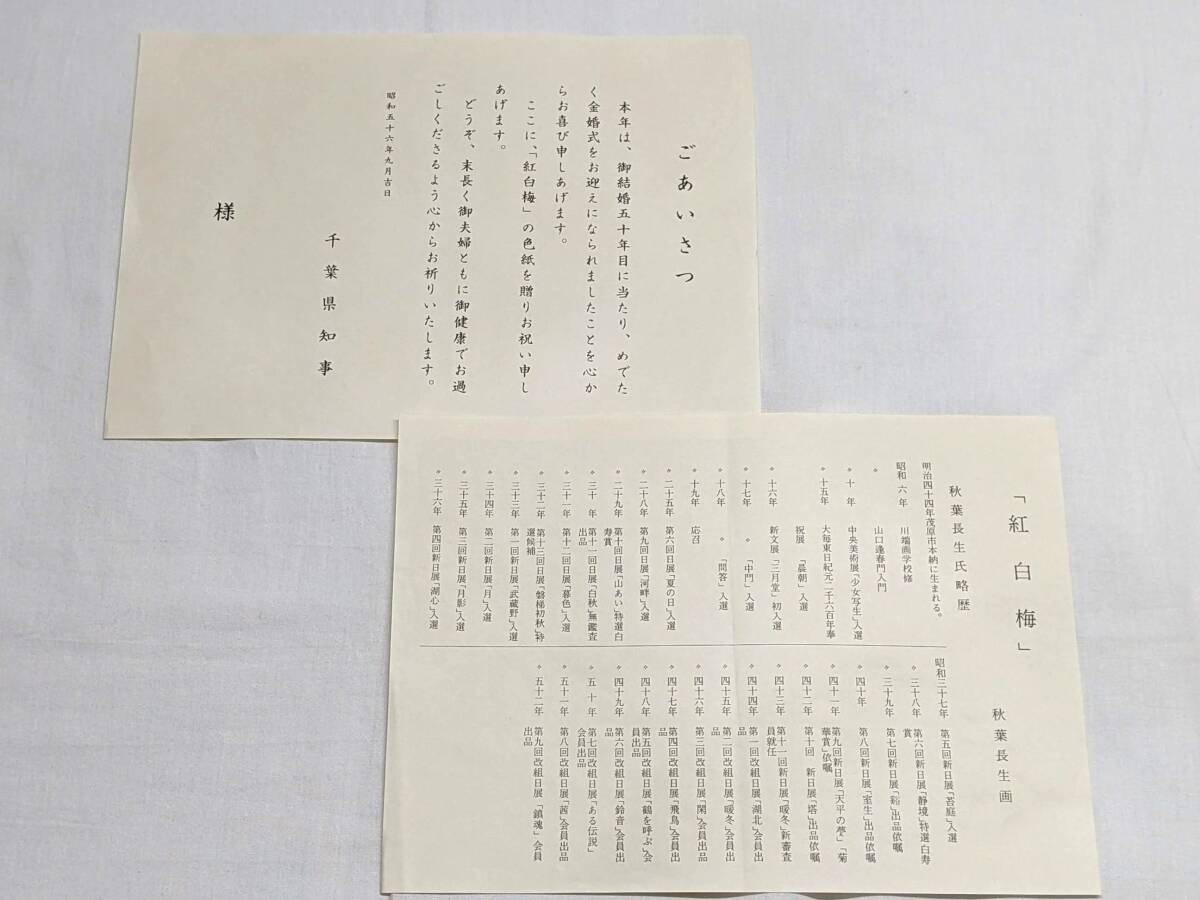 ごあいさつ
本年は、御結婚五十年目に当たり、めでた
く金婚式をお迎えになられましたことを心か
らお喜び申しあげます。
ここに、「紅白梅」の色紙を贈りお祝い申し
あげます。
どうぞ、末長く御夫婦ともに御健康でお過
ごしくださるよう心からお祈りいたします。
昭和五十六年九月吉日
千葉県知事
様
「紅白梅」
秋葉長生画
秋葉長生氏略歴
明治四十四年茂原市本納に生まれる。
昭和六年 川端画学校修
〃 山口逢春門入門
〃十年 中央美術展「少女写生」入選
〃十五年 大毎東日紀元二千六百年奉
祝展「晨朝」入選
〃十六年 新文展「三月堂」初入選
〃十七年 〃「中門」入選
〃十八年 〃「問答」入選
〃十九年 応召
〃二十五年 第六回日展「夏の日」入選
〃二十八年 第九回日展「河畔」入選
〃二十九年 第十回日展「山あい」特選白
寿賞
〃三十年 第十一回日展「白秋」無鑑査
出品
〃三十一年 第十二回日展「暮色」入選
〃三十二年 第十三回日展「磐梯初秋」特
選候補
〃三十三年 第一回新日展「武蔵野」入選
〃三十四年 第二回新日展「月」入選
〃三十五年 第三回新日展「月影」入選
〃三十六年 第四回新日展「湖心」入選
昭和三十七年 第五回新日展「苔庭」入選
〃三十八年 第六回新日展「静境」特選白寿
賞
〃三十九年 第七回新日展「谿」出品依嘱
〃四十年 第八回新日展「室生」出品依嘱
〃四十一年 第九回新日展「天平の甍」「菊
華賞」依嘱
〃四十二年 第十回 新日展「塔」出品依嘱
〃四十三年 第十一回新日展「暖冬」新審査
員就任
〃四十四年 第一回改組日展「湖北」会員出
品
〃四十五年 第二回改組日展「暖冬」会員出
品
〃四十六年 第三回改組日展「閑」会員出品
〃四十七年 第四回改組日展「飛鳥」会員出
品
〃四十八年 第五回改組日展「鶴を呼ぶ」会
員出品
〃四十九年 第六回改組日展「鈴音」会員出
品
〃五十年 第七回改組日展「ある伝説」
会員出品
〃五十一年 第八回改組日展「茜」会員出品
〃五十二年 第九回改組日展「鎮魂」会員
出品